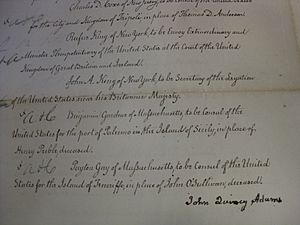 Charles D. Coxe of New Jersey, to be
for the City and Kingdom of Tripoli, in place of Thomas D. Anderson
Rufus King of New York, to be Envoy Extraordinary and
Minister Plenipotentiary of the United States at the Court of the United
Kingdom of Great Britain and Ireland.
John A. King of New York, to be Secretary of the Legation
of the United States near his Britannic Majesty.
Benjamin Gardner of Massachusetts, to be Consul of the
United States for the port of Palermo in the Island of Sicily, in place of
Henry Preble, deceased.
Payton Gay of Massachusetts, to be Consul of the United
States for the Island of Teneriffe, in place of John O'Sullivan, deceased.
John Quincy Adams